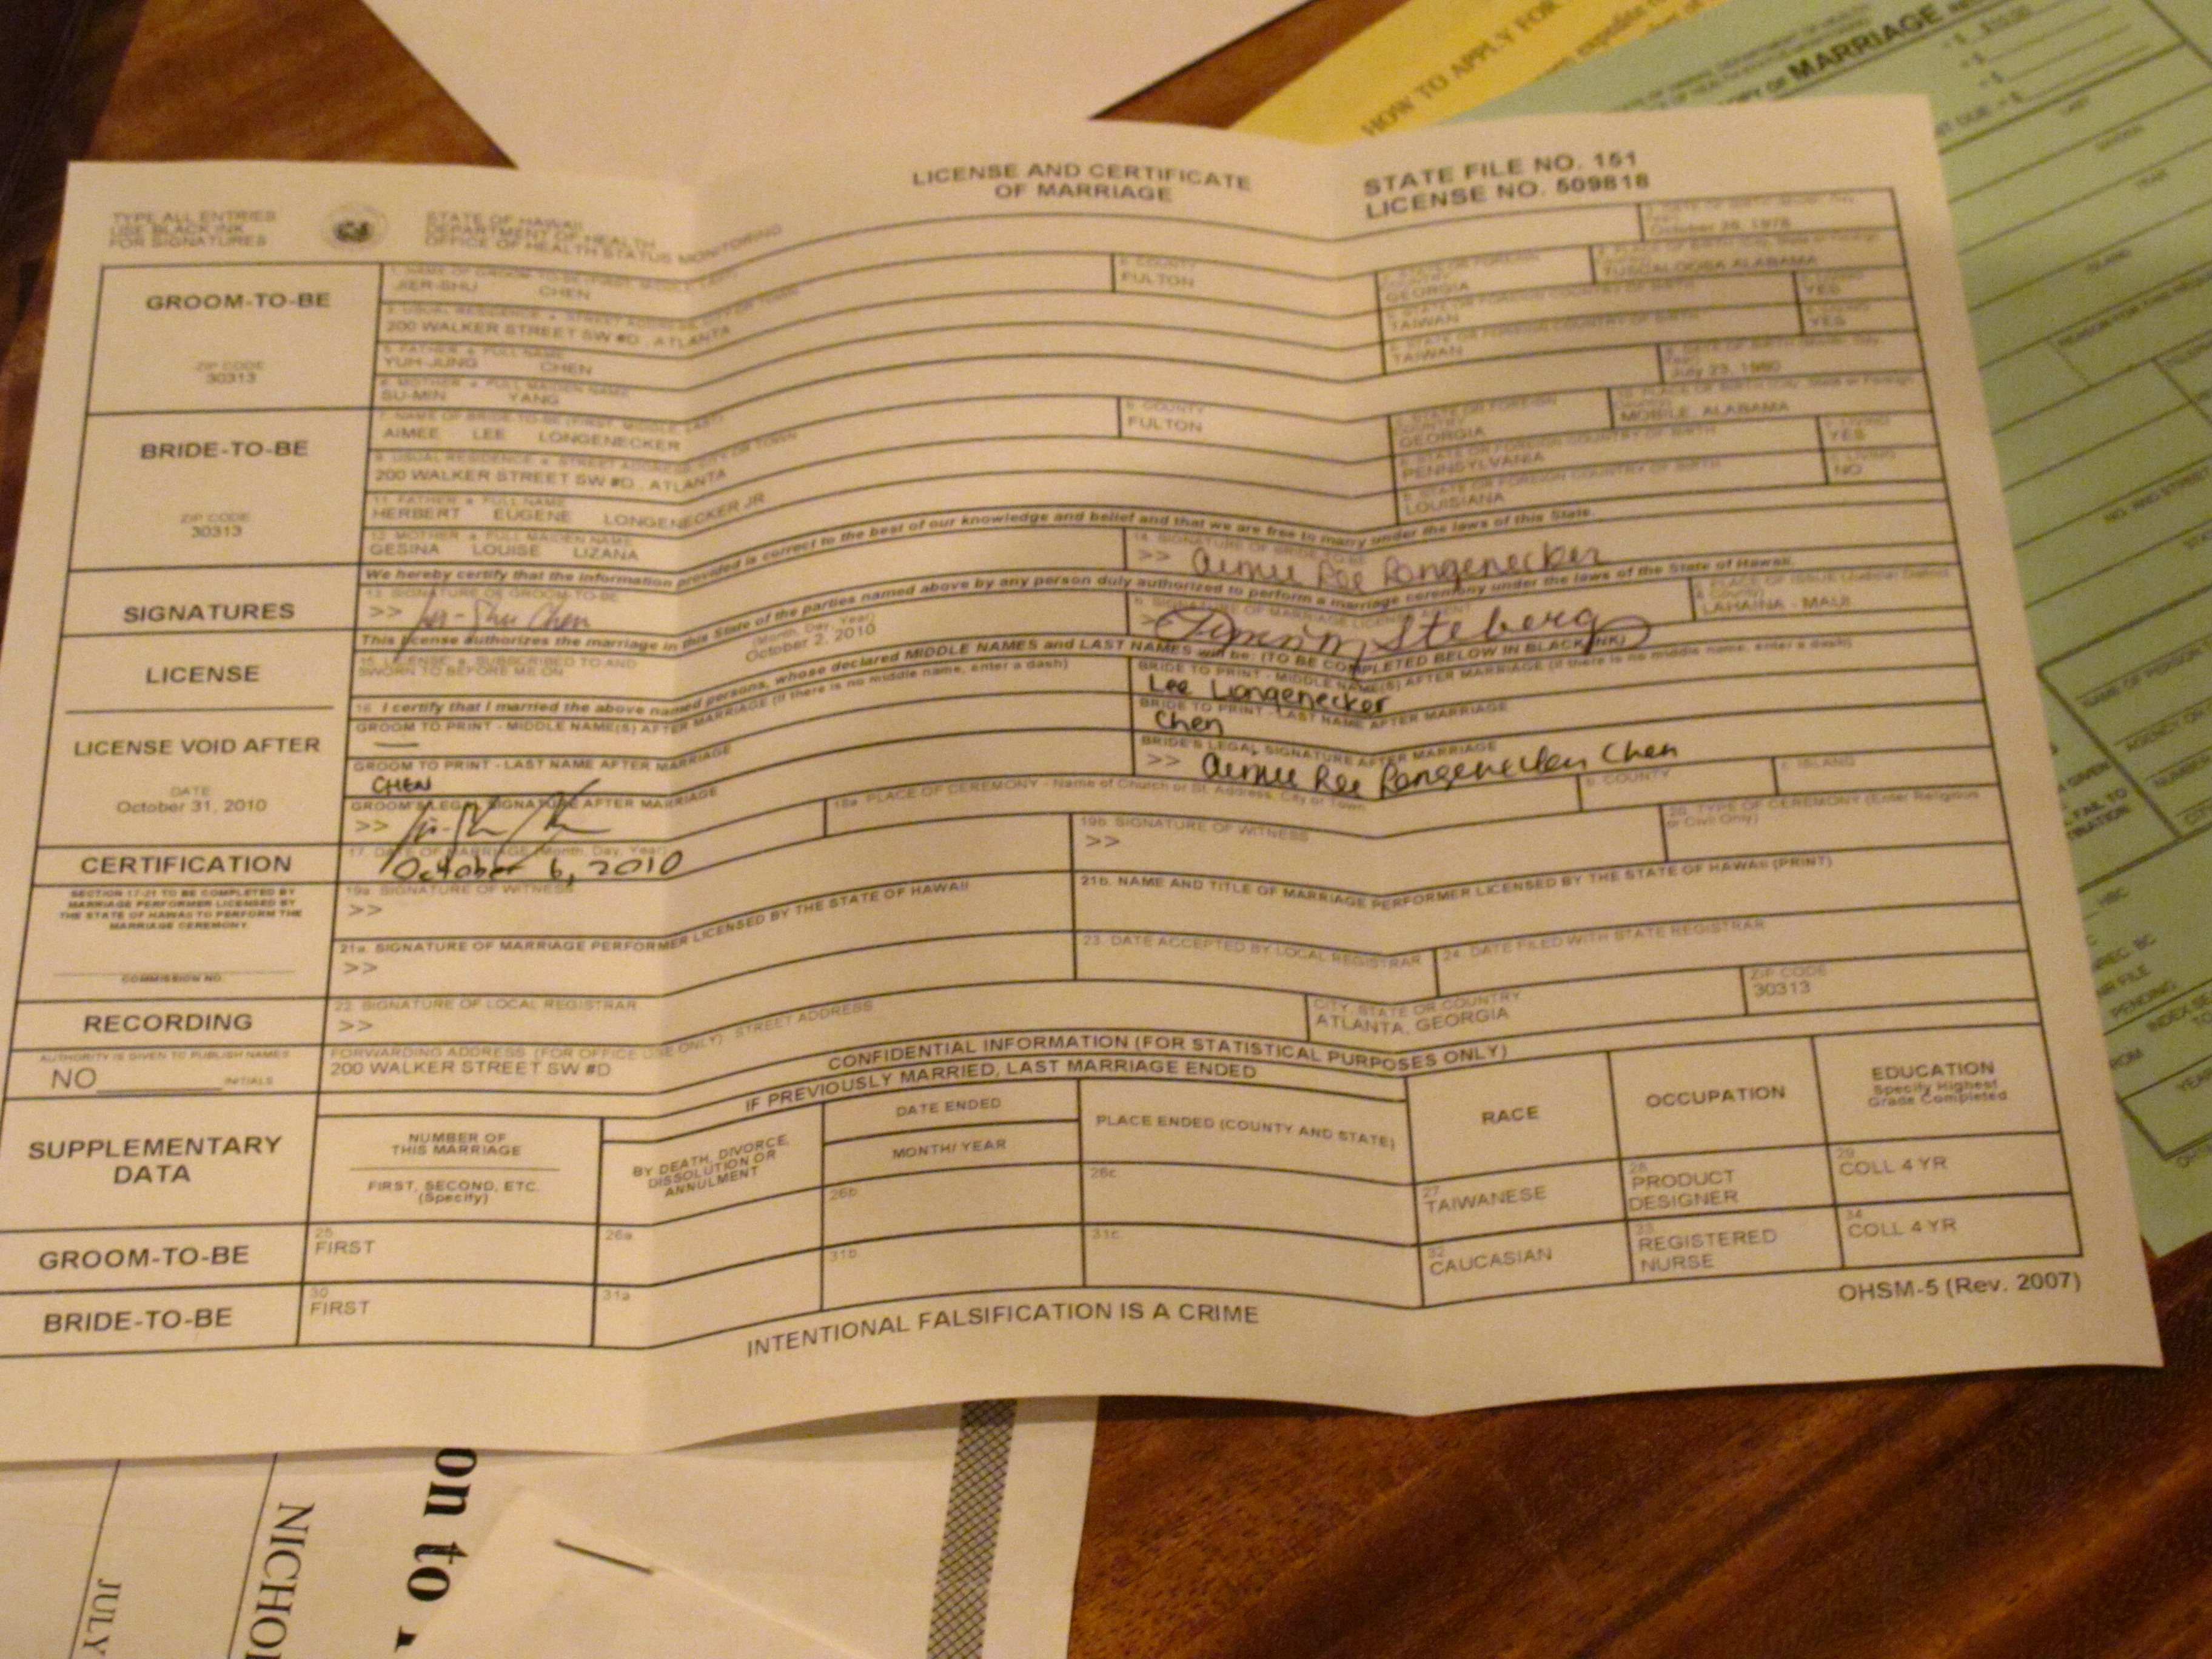 HOW TO APPLY FOR
MARRIAGE
LICENSE AND CERTIFICATE
OF MARRIAGE
STATE FILE NO. 151
LICENSE NO. 509818
TYPE ALL ENTRIES
USE BLACK INK
FOR SIGNATURES
STATE OF HAWAII
DEPARTMENT OF HEALTH
OFFICE OF HEALTH STATUS MONITORING
GROOM-TO-BE
ZIP CODE
30313
1. NAME OF GROOM-TO-BE (FIRST, MIDDLE, LAST)
CHEN
October 28, 1978
200 WALKER STREET SW #D, ATLANTA
b. COUNTY
FULTON
GEORGIA
TUSCALOOSA ALABAMA
YUH-JUNG CHEN
TAIWAN
YES
SU-MIN YANG
TAIWAN
YES
BRIDE-TO-BE
ZIP CODE
30313
7. NAME OF BRIDE-TO-BE (FIRST, MIDDLE, LAST)
AIMEE LEE LONGENECKER
July 23, 1980
200 WALKER STREET SW #D, ATLANTA
b. COUNTY
FULTON
GEORGIA
MOBILE, ALABAMA
HERBERT EUGENE LONGENECKER JR
PENNSYLVANIA
YES
GESINA LOUISE LIZANA
LOUISIANA
NO
SIGNATURES
We hereby certify that the information provided is correct to the best of our knowledge and belief and that we are free to marry under the laws of this State.
13. SIGNATURE OF GROOM-TO-BE
>>
14. SIGNATURE OF BRIDE-TO-BE
>> Aimee Lee Longenecker
LICENSE
This license authorizes the marriage in this State of the parties named above by any person duly authorized to perform a marriage ceremony under the laws of the State of Hawaii.
15. LICENSE a. SUBSCRIBED TO AND
SWORN TO BEFORE ME ON
(Month, Day, Year)
October 2, 2010
b. SIGNATURE OF MARRIAGE LICENSE AGENT
LAHAINA - MAUI
LICENSE VOID AFTER
DATE
October 31, 2010
16. I certify that I married the above named persons, whose declared MIDDLE NAMES and LAST NAMES will be: (TO BE COMPLETED BELOW IN BLACK INK)
GROOM TO PRINT - MIDDLE NAME(S) AFTER MARRIAGE (if there is no middle name, enter a dash)
—
BRIDE TO PRINT - MIDDLE NAME(S) AFTER MARRIAGE (if there is no middle name, enter a dash)
Lee Longenecker
GROOM TO PRINT - LAST NAME AFTER MARRIAGE
CHEN
BRIDE TO PRINT - LAST NAME AFTER MARRIAGE
Chen
GROOM'S LEGAL SIGNATURE AFTER MARRIAGE
>>
BRIDE'S LEGAL SIGNATURE AFTER MARRIAGE
>> Aimee Lee Longenecker Chen
CERTIFICATION
SECTION 17-21 TO BE COMPLETED BY
MARRIAGE PERFORMER LICENSED BY
THE STATE OF HAWAII TO PERFORM THE
MARRIAGE CEREMONY.
COMMISSION NO.
17. DATE OF MARRIAGE (Month, Day, Year)
October 6, 2010
18a. PLACE OF CEREMONY - Name of Church or St. Address, City or Town
b. COUNTY
c. ISLAND
19a. SIGNATURE OF WITNESS
>>
19b. SIGNATURE OF WITNESS
>>
20. TYPE OF CEREMONY (Enter Religious
or Civil Only)
21a. SIGNATURE OF MARRIAGE PERFORMER LICENSED BY THE STATE OF HAWAII
>>
21b. NAME AND TITLE OF MARRIAGE PERFORMER LICENSED BY THE STATE OF HAWAII (PRINT)
RECORDING
22. SIGNATURE OF LOCAL REGISTRAR
>>
23. DATE ACCEPTED BY LOCAL REGISTRAR
24. DATE FILED WITH STATE REGISTRAR
AUTHORITY IS GIVEN TO PUBLISH NAMES
NO INITIALS
FORWARDING ADDRESS (FOR OFFICE USE ONLY) STREET ADDRESS
200 WALKER STREET SW #D
CITY, STATE OR COUNTRY
ATLANTA, GEORGIA
ZIP CODE
30313
CONFIDENTIAL INFORMATION (FOR STATISTICAL PURPOSES ONLY)
SUPPLEMENTARY
DATA
NUMBER OF
THIS MARRIAGE
FIRST, SECOND, ETC.
(Specify)
IF PREVIOUSLY MARRIED, LAST MARRIAGE ENDED
BY DEATH, DIVORCE,
DISSOLUTION OR
ANNULMENT
DATE ENDED
MONTH/ YEAR
PLACE ENDED (COUNTY AND STATE)
RACE
OCCUPATION
EDUCATION
Specify Highest
Grade Completed
GROOM-TO-BE
25
FIRST
26a
26b
26c
27
TAIWANESE
28
PRODUCT
DESIGNER
29
COLL 4 YR
BRIDE-TO-BE
30
FIRST
31a
31b
31c
32
CAUCASIAN
33
REGISTERED
NURSE
34
COLL 4 YR
INTENTIONAL FALSIFICATION IS A CRIME
OHSM-5 (Rev. 2007)
on to
NICHO
JULY